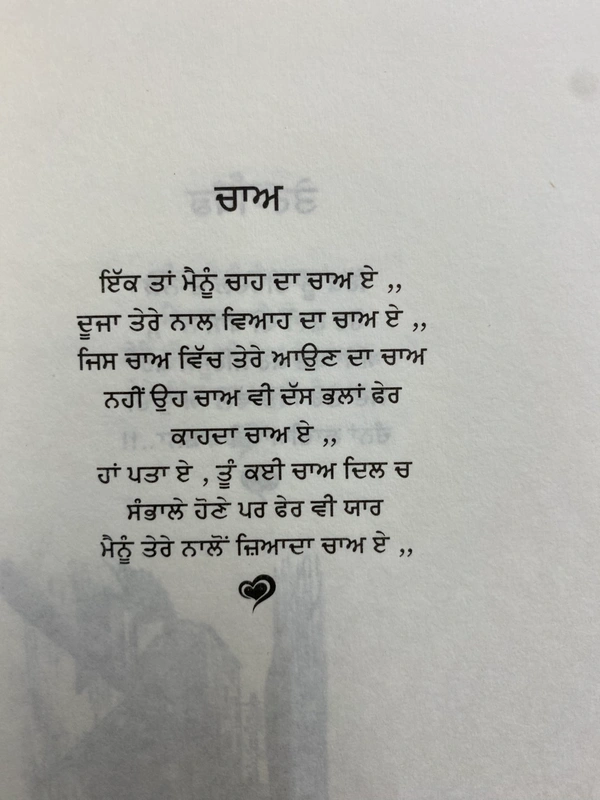 ਚਾਅ
ਇੱਕ ਤਾਂ ਮੈਨੂੰ ਚਾਹ ਦਾ ਚਾਅ ਏ ,,
ਦੂਜਾ ਤੇਰੇ ਨਾਲ ਵਿਆਹ ਦਾ ਚਾਅ ਏ ,,
ਜਿਸ ਚਾਅ ਵਿੱਚ ਤੇਰੇ ਆਉਣ ਦਾ ਚਾਅ
ਨਹੀਂ ਉਹ ਚਾਅ ਵੀ ਦੱਸ ਭਲਾਂ ਫੇਰ
ਕਾਹਦਾ ਚਾਅ ਏ ,,
ਹਾਂ ਪਤਾ ਏ , ਤੂੰ ਕਈ ਚਾਅ ਦਿਲ ਚ
ਸੰਭਾਲੇ ਹੋਣੇ ਪਰ ਫੇਰ ਵੀ ਯਾਰ
ਮੈਨੂੰ ਤੇਰੇ ਨਾਲੋਂ ਜ਼ਿਆਦਾ ਚਾਅ ਏ ,,